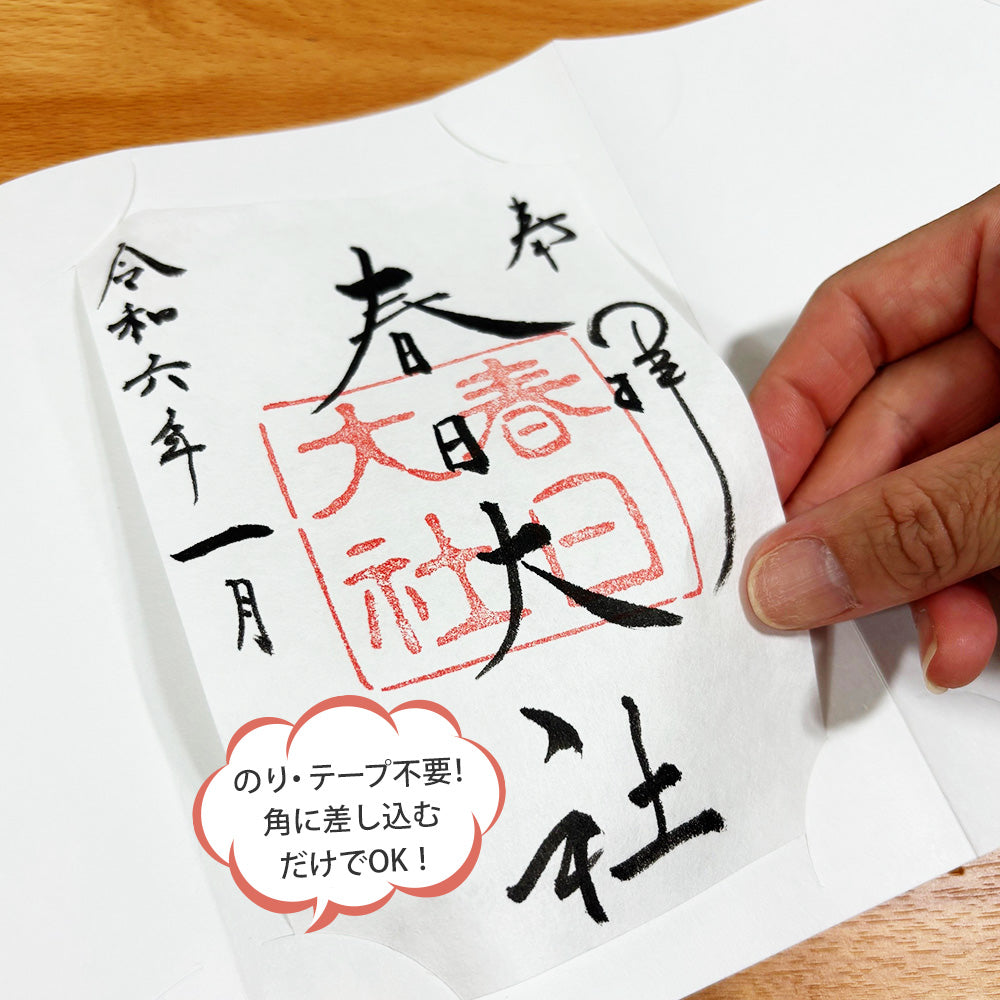 奉拝
春日大社
春日
大社
令和六年一月
のり・テープ不要!
角に差し込む
だけでOK!